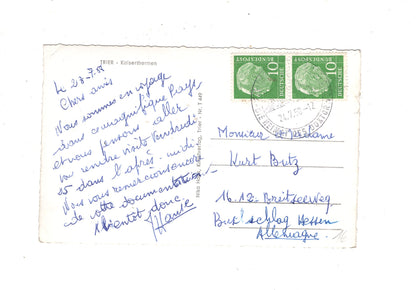 TRIER - Kaiserthermen
Le 23.7.58
Chers amis
Nous sommes en voyage
dans ce magnifique Pays
et nous pensons aller
vous rendre visite Vendredi
25 dans l'après-midi
Nous vous remercions encore
de votre documentation
A bientôt donc.
10
DEUTSCHE
10
DEUTSCHE
Monsieur et Madame
Kurt Butz
16.12 Breitseeweg
Buchschlag Hessen
Allemagne